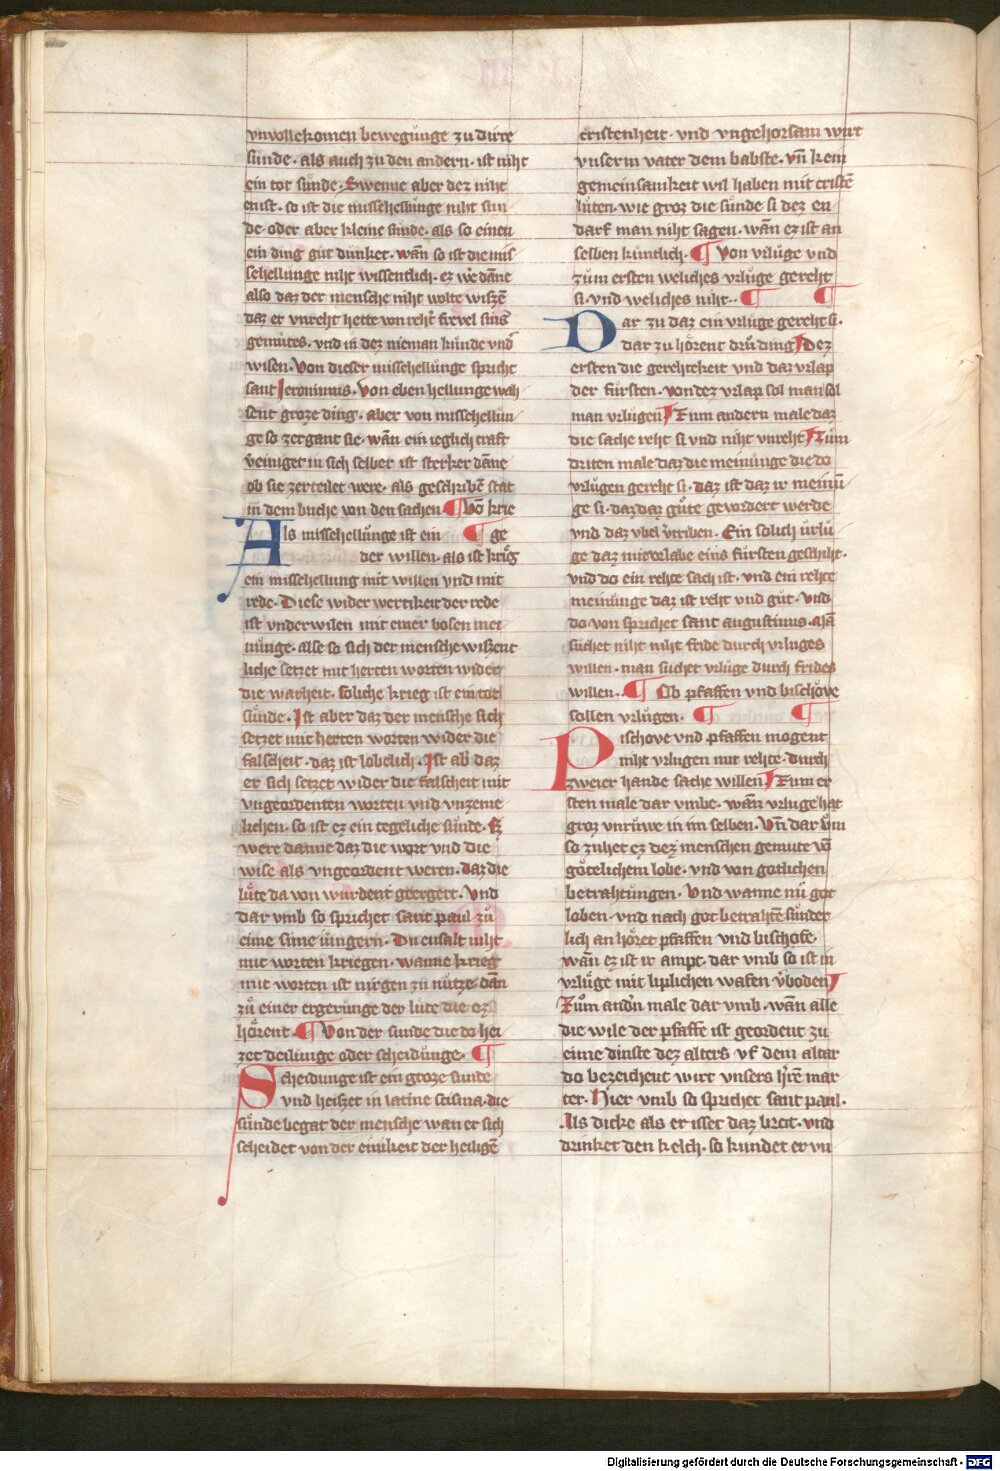 vnvollekomen bewegunge zu dirre
sunde · als auch zu den andern · ist niht
ein tot sunde · Swenne aber dez niht
enist · so ist die missehellunge niht sun
de · oder aber kleine sunde · als so einen
ein ding gut dunket · wan so ist die mis
sehellunge niht wissentlich · ez we danne
also daz der mensche niht wolte wiszē
daz er vnreht hette von reht frevel sins
gemutes · vnd in dez nieman kunde vnd
wisen · Von dieser missehellunge spricht
sant Jeronimus · Von eben hellunge wah
sent groze ding · aber von missehellun
ge so zergant sie · wan ein ieglich craft
vereiniget in sich selber ist sterker danne
ob sie zerteilet were · als geschriben stat
in dem buche von den sachen ¶ Vō krie
Als missehellunge ist ein ¶ ge
der willen · als ist krieg
ein missehellung mit willen vnd mit
rede · Diese wider wertikeit der rede
ist vnderwilen mit einer bosen mei
nunge · alse so sich der mensche wiszent
liche setzet mit herten worten wider
die warheit · soliche krieg ist ein tot
sunde · Ist aber daz der mensche sich
setzet mit herten worten wider die
falscheit · daz ist lobelich · Ist ab daz
er sich setzet wider die falscheit mit
vngeordenten worten vnd vnzeme
lichen · so ist ez ein tegeliche sunde · Ez
were danne daz die wort vnd die
wise als vngeordent weren · daz die
lute da von wurdent geergert · Vnd
dar vmb so sprichet sant paul zu
eime sime iungern · Du ensalt niht
mit worten kriegen · wanne krieg
mit worten ist nirgen zu nutze · dan
zu einer ergerunge der lute die ez
hörent · ¶ Von der sunde die do hei
zet deilunge oder scheidunge · ¶
Scheidunge ist ein groze sunde
vnd heiszet in latine scisma · die
sunde begat der mensche wan er sich
scheidet von der einikeit der heiligē
cristenheit · vnd vngehorsam wirt
vnserm vater dem babste · vn̄ kein
gemeinsamkeit wil haben mit cristē
luten · wie groz die sunde si dez en
darf man niht sagen · wan ez ist an
selben kuntlich · ¶ Von vrluge vnd
zum ersten weliches vrluge gereht
si · vnd weliches niht · · ¶ ¶
Dar zu daz ein vrluge gereht si ·
dar zu hörent dru ding Dez
ersten die gerehtekeit vnd daz vrlap
der fursten · von dez vrlap sol man sol
man vrlugen Zum andern male daz
die sache reht si vnd niht vnreht Zum
driten male daz die meinunge die do
vrlugen gereht si · daz ist daz ir meinū
ge si · daz daz gute gevordert werde
vnd daz vbel vtriben · Ein solich urlu
ge daz mit vrlabe eins fursten geschiht ·
vnd do ein rehte sach ist · vnd ein rehte
meinunge daz ist reht vnd gut · Vnd
do von sprichet sant augustinus · Man
suchet niht niht fride durch vrluges
willen · man suchet vrluge durch frides
willen · ¶ Ob pfaffen vnd bischöve
sollen vrlugen · ¶ ¶
Pischove vnd pfaffen mogent
niht vrlugen mit rehte · durch
zweier hande sache willen Zum er
sten male dar vmbe · wan vrluge hat
groz vnruwe in im selben · Vn̄ dar vm
so zuhet ez dez menschen gemute vō
götelichem lobe · vnd von gotlichen
betrahtungen · Vnd wanne nu got
loben · vnd nach got betrahtē sunder
lich an höret pfaffen vnd bischofe ·
wan ez ist ir ampt · dar vmb so ist in
vrluge mit liplichen wafen vboden
Zum andn male dar vmb · wan alle
die wile der pfaffe ist geordent zu
eime dinste dez alters vf dem altar
do bezeichent wirt vnsers hre mar
ter · Hier vmb so sprichet sant paul ·
Als dicke als er isset daz brot · vnd
drinket den kelch · so kundet er vn
Digitalisierung gefördert durch die Deutsche Forschungsgemeinschaft - DFG